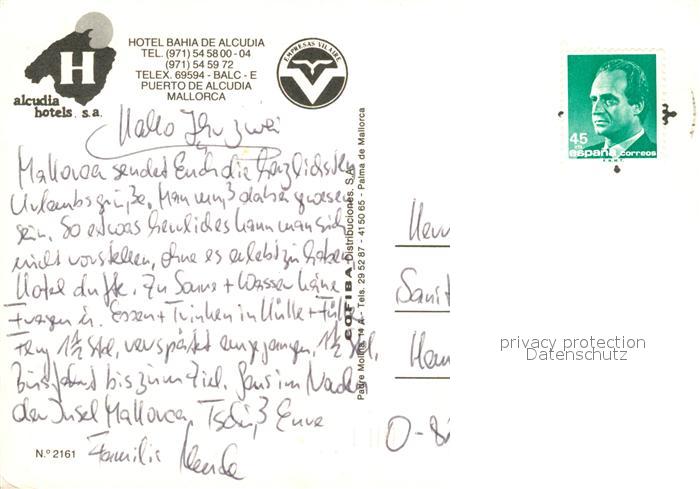 HOTEL BAHIA DE ALCUDIA
TEL. (971) 54 58 00 - 04
(971) 54 59 72
TELEX. 69594 - BALC - E
PUERTO DE ALCUDIA
MALLORCA
H
alcudia
hotels, s.a.
EMPRESAS VILAIRE
45
españa correos
Hallo Ihr zwei
Mallorca sendet Euch die herzlichsten
Urlaubsgrüße. Man muß dabei gewesen
sein. So etwas herrliches kann man sich
nicht vorstellen, ohne es erlebt zu haben.
Hotel dufte. Zu Sonne + Wasser keine
Fragen. Essen + Trinken in Hülle + Fülle
1½ Std. verspätet 1½ Std.
Busfahrt bis zum Ziel. Ganz im Norden
der Insel Mallorca. Tschüß Eure
Familie
N.º 2161
COFIBA Distribuciones, S.A.
Padre Molina, 14 A - Tels. 29 52 87 - 41 50 65 - Palma de Mallorca
Sanit
D-8
privacy protection
Datenschutz